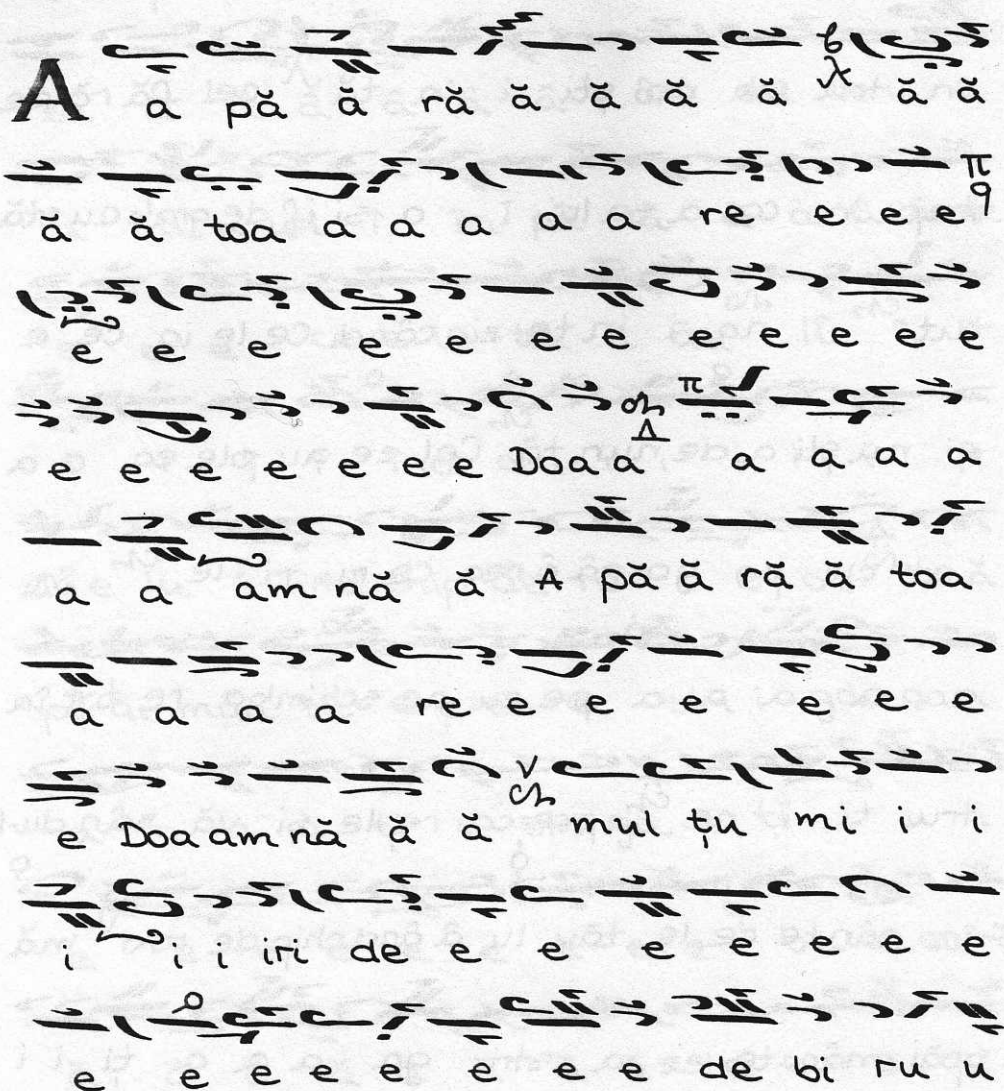 A a pă ă ră ă ă ă ă ă ă
ă ă toa a a a a a re e e e
e e e e e e e e e e e e
e e e e e e e e Doa a a a a a
a a am nă ă A pă ă ră ă toa
a a a a re e e e e e e
e Doa am nă ă ă mul țu mi i i
i i i iri de e e e e e e e
e e e e e e e e de bi ru u